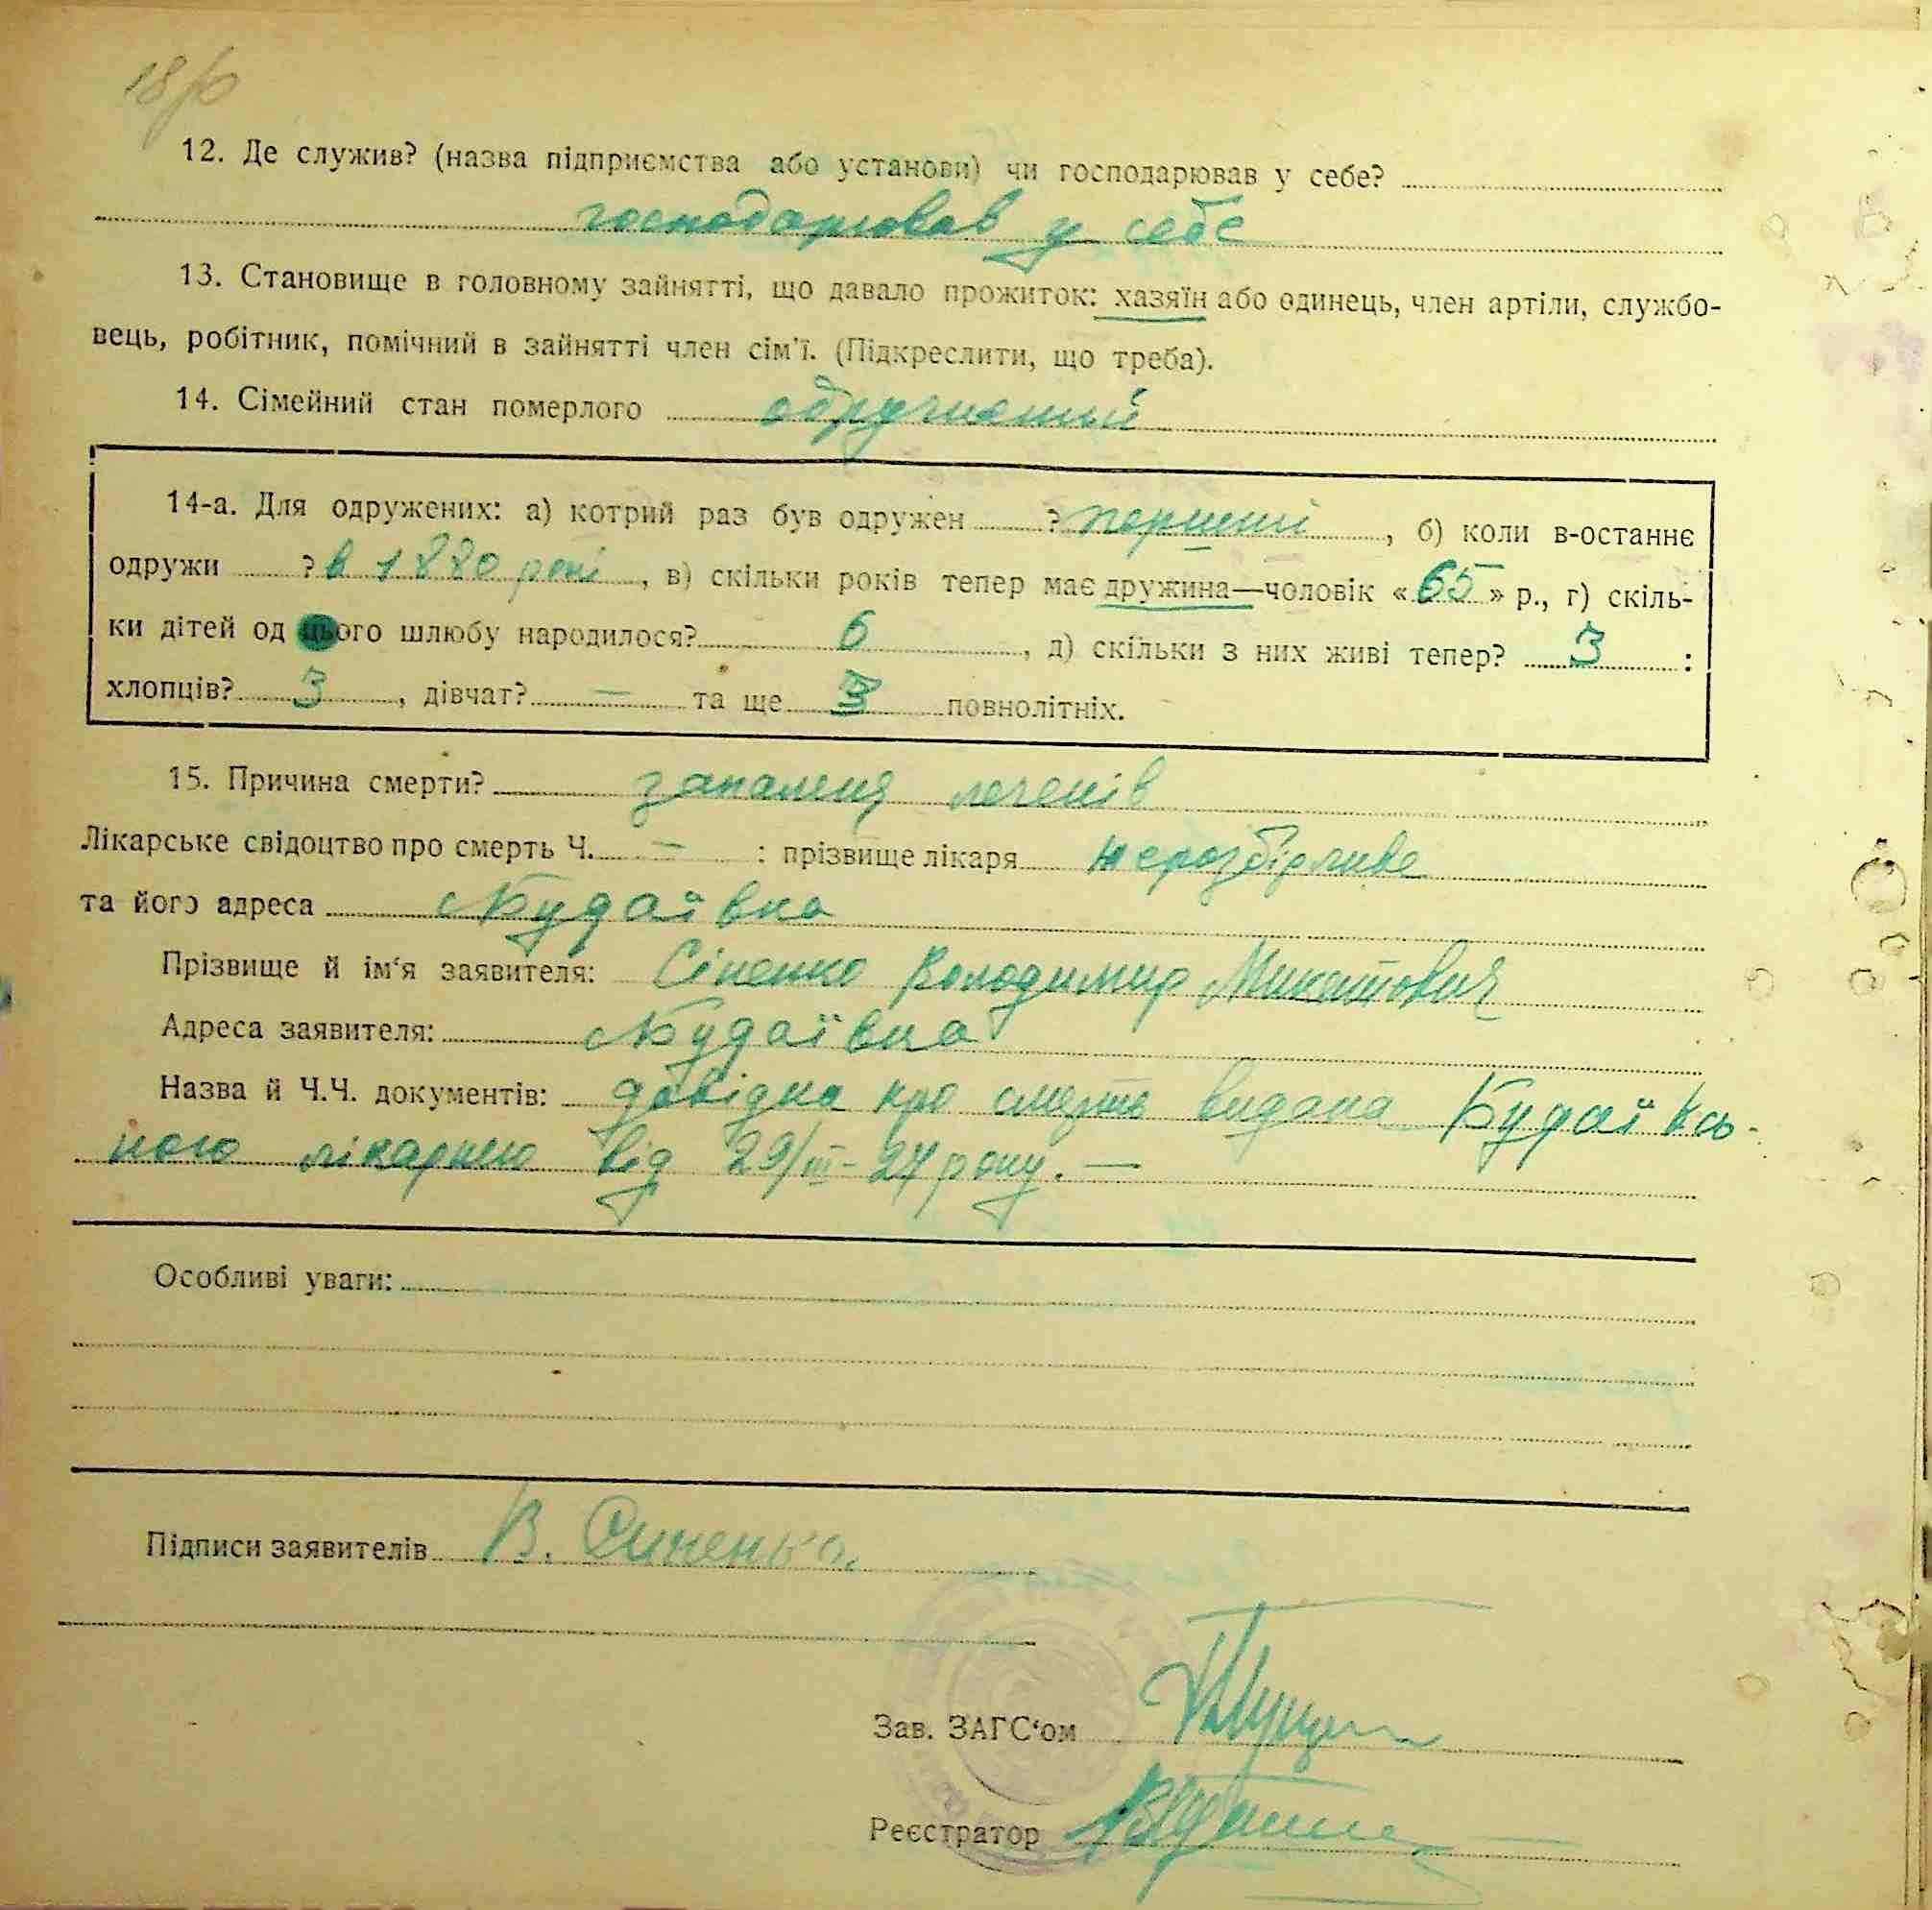 12. Де служив? (назва підприємства або установи) чи господарював у себе?
господарював у себе
13. Становище в головному зайнятті, що давало прожиток: хазяїн або одинець, член артіли, службо-
вець, робітник, помічний в зайнятті член сім'ї. (Підкреслити, що треба).
14. Сімейний стан померлого
14-а. Для одружених: а) котрий раз був одружен ? перший, б) коли в-останнє
одружи ? в 1880 році, в) скільки років тепер має дружина—чоловік «65» р., г) скіль-
ки дітей од цього шлюбу народилося? 6, д) скільки з них живі тепер? 3 :
хлопців? 3, дівчат? — та ще 3 повнолітніх.
15. Причина смерти? запаленя легенів
Лікарське свідоцтво про смерть Ч. — : прізвище лікаря нерозбірливе
та його адреса Кудаївка
Прізвище й ім'я заявителя: Сіненко Володимир
Адреса заявителя: Кудаївка
Назва й Ч.Ч. документів: довідка про смерть видана
ною лікарнею від 29/III-27 року. —
Особливі уваги:
Підписи заявителів В. Синенко
Зав. ЗАГС'ом
Реєстратор